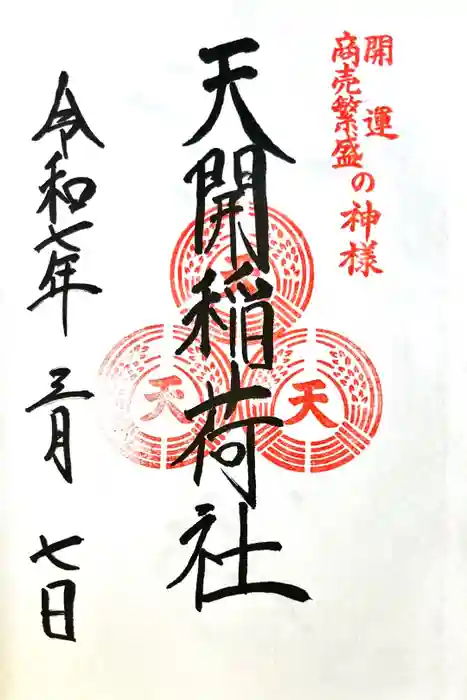 開運
商売繁盛の神様
天開稲荷社
天
天
天
令和七年 三月 七日